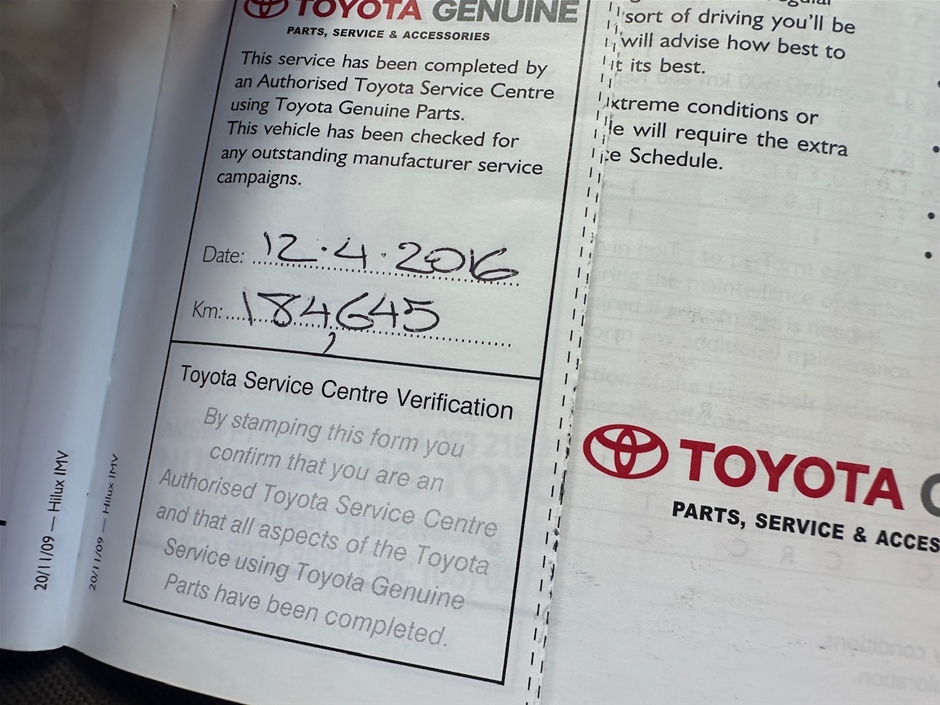 TOYOTA GENUINE
PARTS, SERVICE & ACCESSORIES
This service has been completed by
an Authorised Toyota Service Centre
using Toyota Genuine Parts.
This vehicle has been checked for
any outstanding manufacturer service
campaigns.
Date: 12.4.2016
Km: 184,645
Toyota Service Centre Verification
By stamping this form you
confirm that you are an
Authorised Toyota Service Centre
and that all aspects of the Toyota
Service using Toyota Genuine
Parts have been completed.
20/11/09 — Hilux IMV
20/11/09 — Hilux IMV
sort of driving you'll be
will advise how best to
it its best.
conditions or
will require the extra
Schedule.
TOYOTA
PARTS, SERVICE &